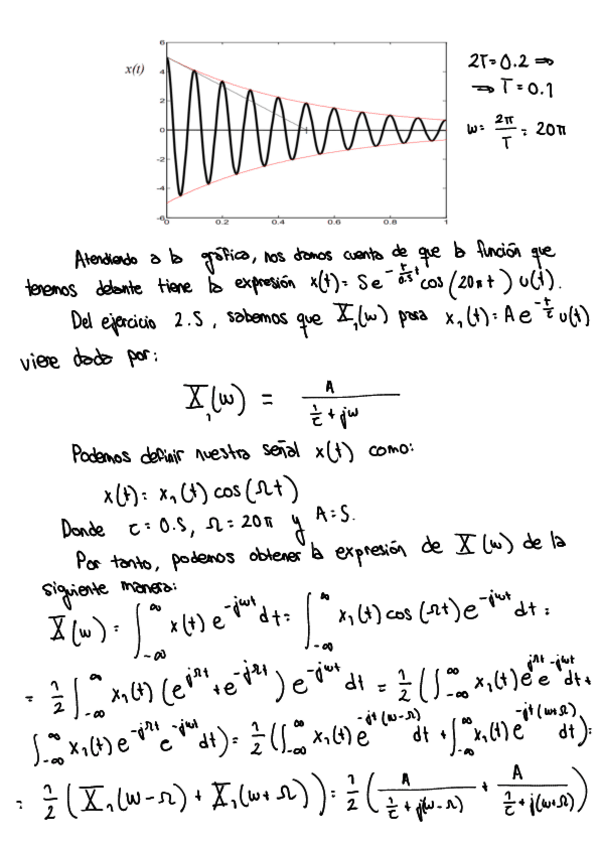 x(t)
6
4
2
0
-2
-4
-6
0 0.2 0.4 0.6 0.8 1
2T=0.2 ⇒
⇒ T=0.1
w= 2π/T = 20π
Atendiendo a la gráfica, nos damos cuenta de que la función que
tenemos delante tiene la expresión x(t)= 5e^(-t/0.5) cos(20πt) u(t).
Del ejercicio 2.5, sabemos que X₁(w) para x₁(t)=Ae^(-t/τ) u(t)
viene dado por:
X₁(w) = A/(1/τ + jw)
Podemos definir nuestra señal x(t) como:
x(t)= x₁(t) cos(Ωt)
Donde τ=0.5, Ω=20π y A=5.
Por tanto, podemos obtener la expresión de X(w) de la
siguiente manera:
X(w)= ∫_{-∞}^{∞} x(t) e^{-jwt} dt= ∫_{-∞}^{∞} x₁(t) cos(Ωt) e^{-jwt} dt =
= 1/2 ∫_{-∞}^{∞} x₁(t) (e^{jΩt} + e^{-jΩt}) e^{-jwt} dt = 1/2 (∫_{-∞}^{∞} x₁(t) e^{jΩt} e^{-jwt} dt +
∫_{-∞}^{∞} x₁(t) e^{-jΩt} e^{-jwt} dt)= 1/2 (∫_{-∞}^{∞} x₁(t) e^{-jt(w-Ω)} dt + ∫_{-∞}^{∞} x₁(t) e^{-jt(w+Ω)} dt)=
= 1/2 (X₁(w-Ω) + X₁(w+Ω))= 1/2 (A/(1/τ + j(w-Ω)) + A/(1/τ + j(w+Ω)))